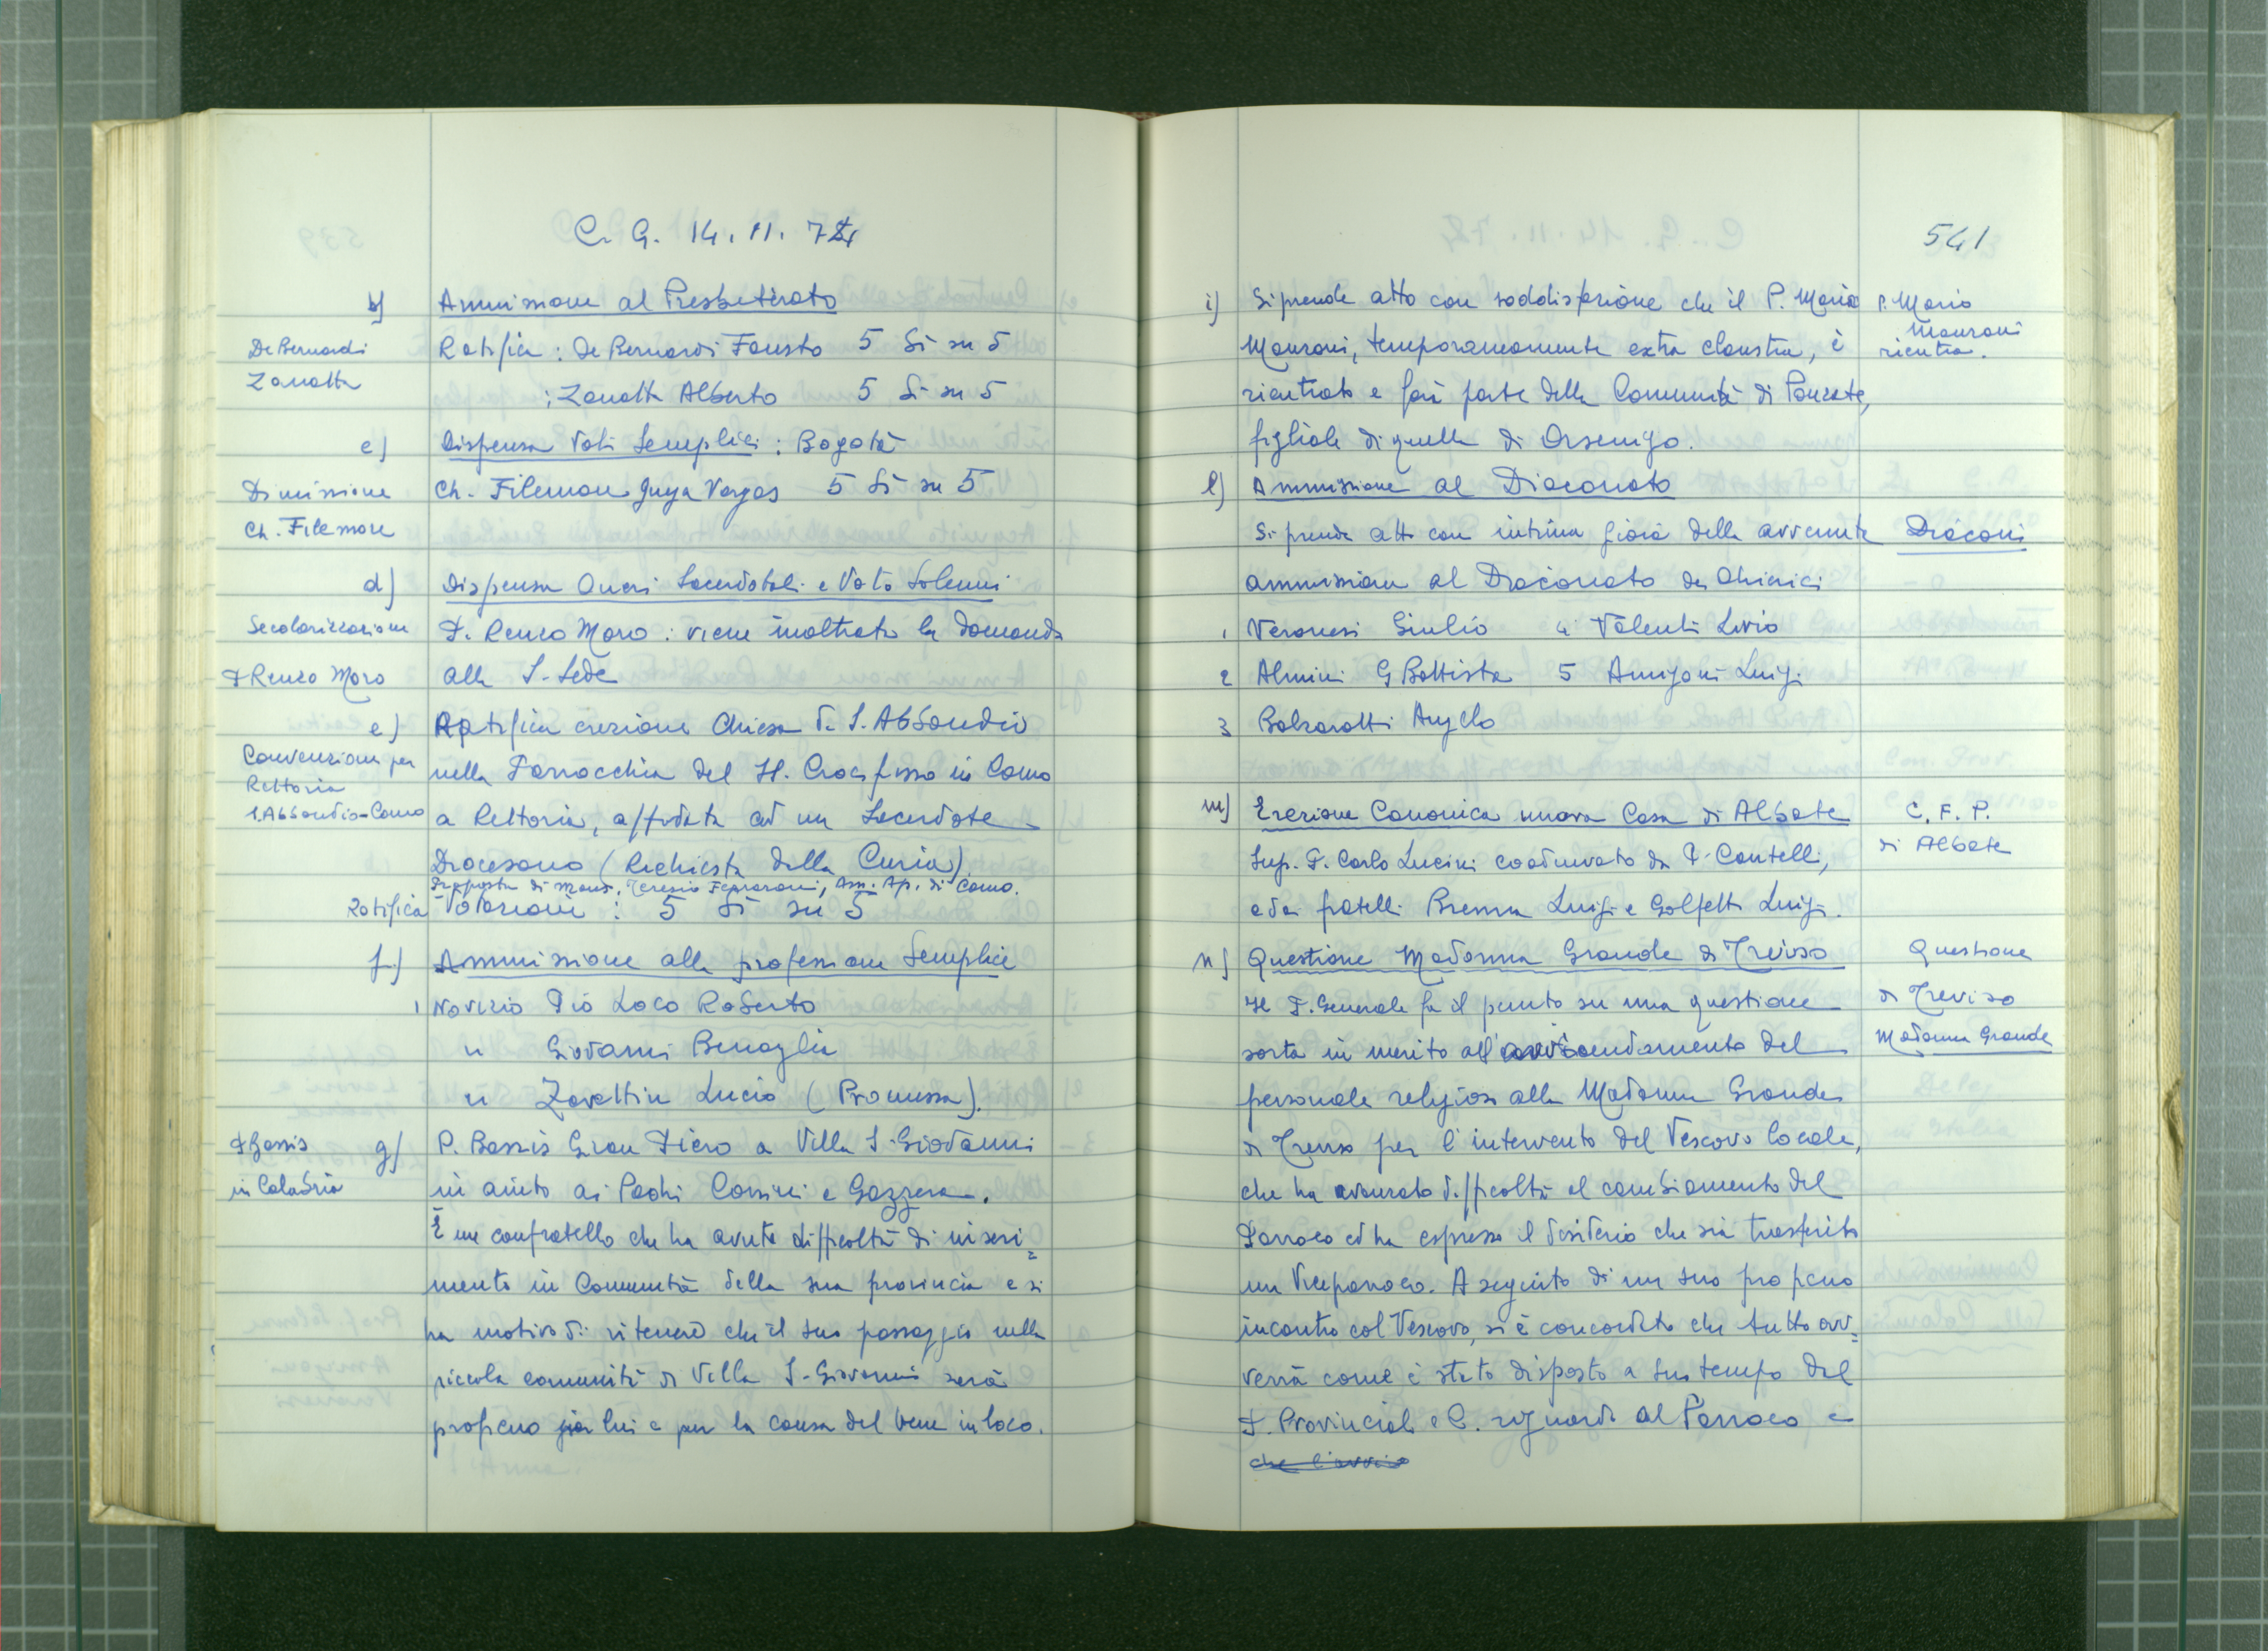 C. G. 14.11.74
b) Ammissione al Presbiterato
De Bernardi
Zanatta
Ratifica: De Bernardi Fausto 5 Sì su 5
: Zanatta Alberto 5 Sì su 5
c) Dispensa Voti Semplici: Bogotà
Dimissione
Ch. Filemone
Ch. Filemon Vargas 5 Sì su 5
d) Dispensa Oneri Sacerdotali e Voto Solenni
Secolarizzazione
P. Renzo Moro
P. Renzo Moro: viene inoltrata la domanda
alla S. Sede
e) Ratifica erezione Chiesa di S. Abbondio
Convenzione per
Rettoria
S. Abbondio-Como
nella Parrocchia del SS. Crocifisso in Como
a Rettoria, affidata ad un Sacerdote
Diocesano (Richiesta della Curia)
Proposta di Mons. Teresio Ferraroni, Am. Ap. di Como.
Ratifica Votazione: 5 Sì su 5
f) Ammissione alla professione Semplice
1 Novizio Pio Loco Roberto
" Giovanni Benaglia
" Zavattin Lucio (Promessa).
P. Bassis
in Calabria
g) P. Bassis Gian Piero a Villa S. Giovanni
in aiuto ai Padri Corsini e Gazzera.
È un confratello che ha avuto difficoltà di inseri=
mento in Comunità della sua provincia e si
ha motivo di ritenere che il suo passaggio nella
piccola comunità di Villa S. Giovanni sarà
proficuo per lui e per la causa del bene in loco.
541
i) Si prende atto con soddisfazione che il P. Mario
P. Mario
Manzoni
rientra.
Manzoni, temporaneamente extra claustra, è
rientrato e farà parte della Comunità di Ponzate,
figliale di quella di Orsenigo.
l) Ammissione al Diaconato
Si prende atto con intima gioia della avvenuta
Diaconi
ammissione al Diaconato dei Chierici
1 Veronesi Giulio 4 Valenti Livio
2 Almini G Battista 5 Amigoni Luigi
3 Balzarotti Angelo
m) Erezione Canonica nuova Casa di Albate
C. F. P.
di Albate
Sup. P. Carlo Lucini coadiuvato da P. Cantelli,
e dai fratelli Brenna Luigi e Golfetto Luigi.
n) Questione Madonna Grande di Treviso
Questione
di Treviso
Madonna Grande
Il P. Generale fa il punto su una questione
sorta in merito all'avvicendamento del
personale religioso alla Madonna Grande
di Treviso per l'intervento del Vescovo locale,
che ha avanzato difficoltà al cambiamento del
Parroco ed ha espresso il desiderio che sia trasferito
un Viceparroco. A seguito di un suo proficuo
incontro col Vescovo, si è concordato che tutto av=
verrà come è stato disposto a suo tempo dal
P. Provinciale e C. riguardo al Parroco e
che l'avvi